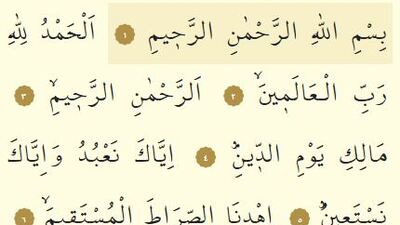 بِسْمِ اللهِ الرَّحْمٰنِ الرَّحٖيمِ ١ اَلْحَمْدُ لِلّٰهِ
رَبِّ الْعَالَمٖينَۙ ٢ اَلرَّحْمٰنِ الرَّحٖيمِۙ ٣
مَالِكِ يَوْمِ الدّٖينِۜ ٤ اِيَّاكَ نَعْبُدُ وَاِيَّاكَ
نَسْتَعٖينُۜ ٥ اِهْدِنَا الصِّرَاطَ الْمُسْتَقٖيمَۙ ٦